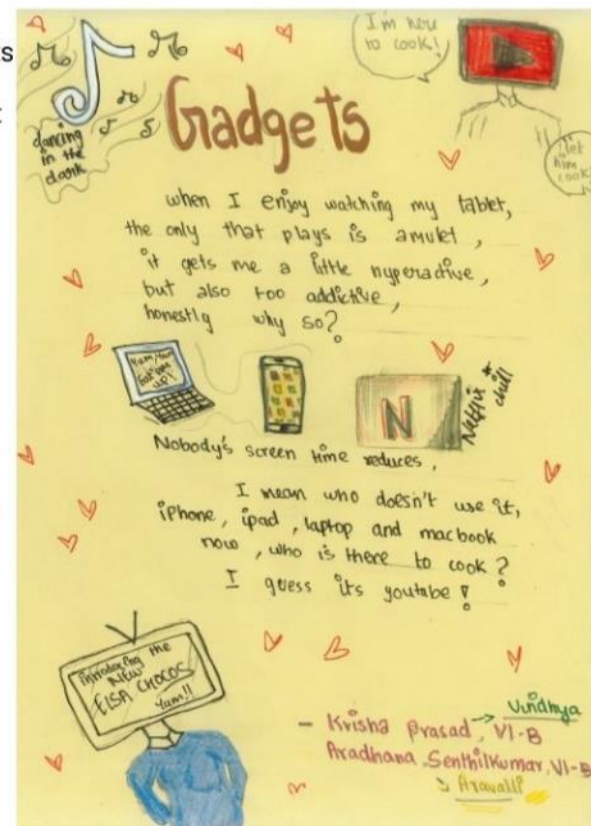 I'm here
to cook!
dancing
in the
dark
Gadgets
let
him
cook!
when I enjoy watching my tablet,
the only that plays is amulet,
it gets me a little hyperactive,
but also too addictive,
honestly why so?
N
Netflix &
chill
Nobody's screen time reduces,
I mean who doesn't use it,
iphone, ipad, laptop and macbook
now, who is there to cook?
I guess its youtube!
introducing the
NEW
ELSA CHOCOS
Yum!!
- Krisha Prasad, VI-B
Vindhya
Aradhana Senthilkumar, VI-B
Aravalli